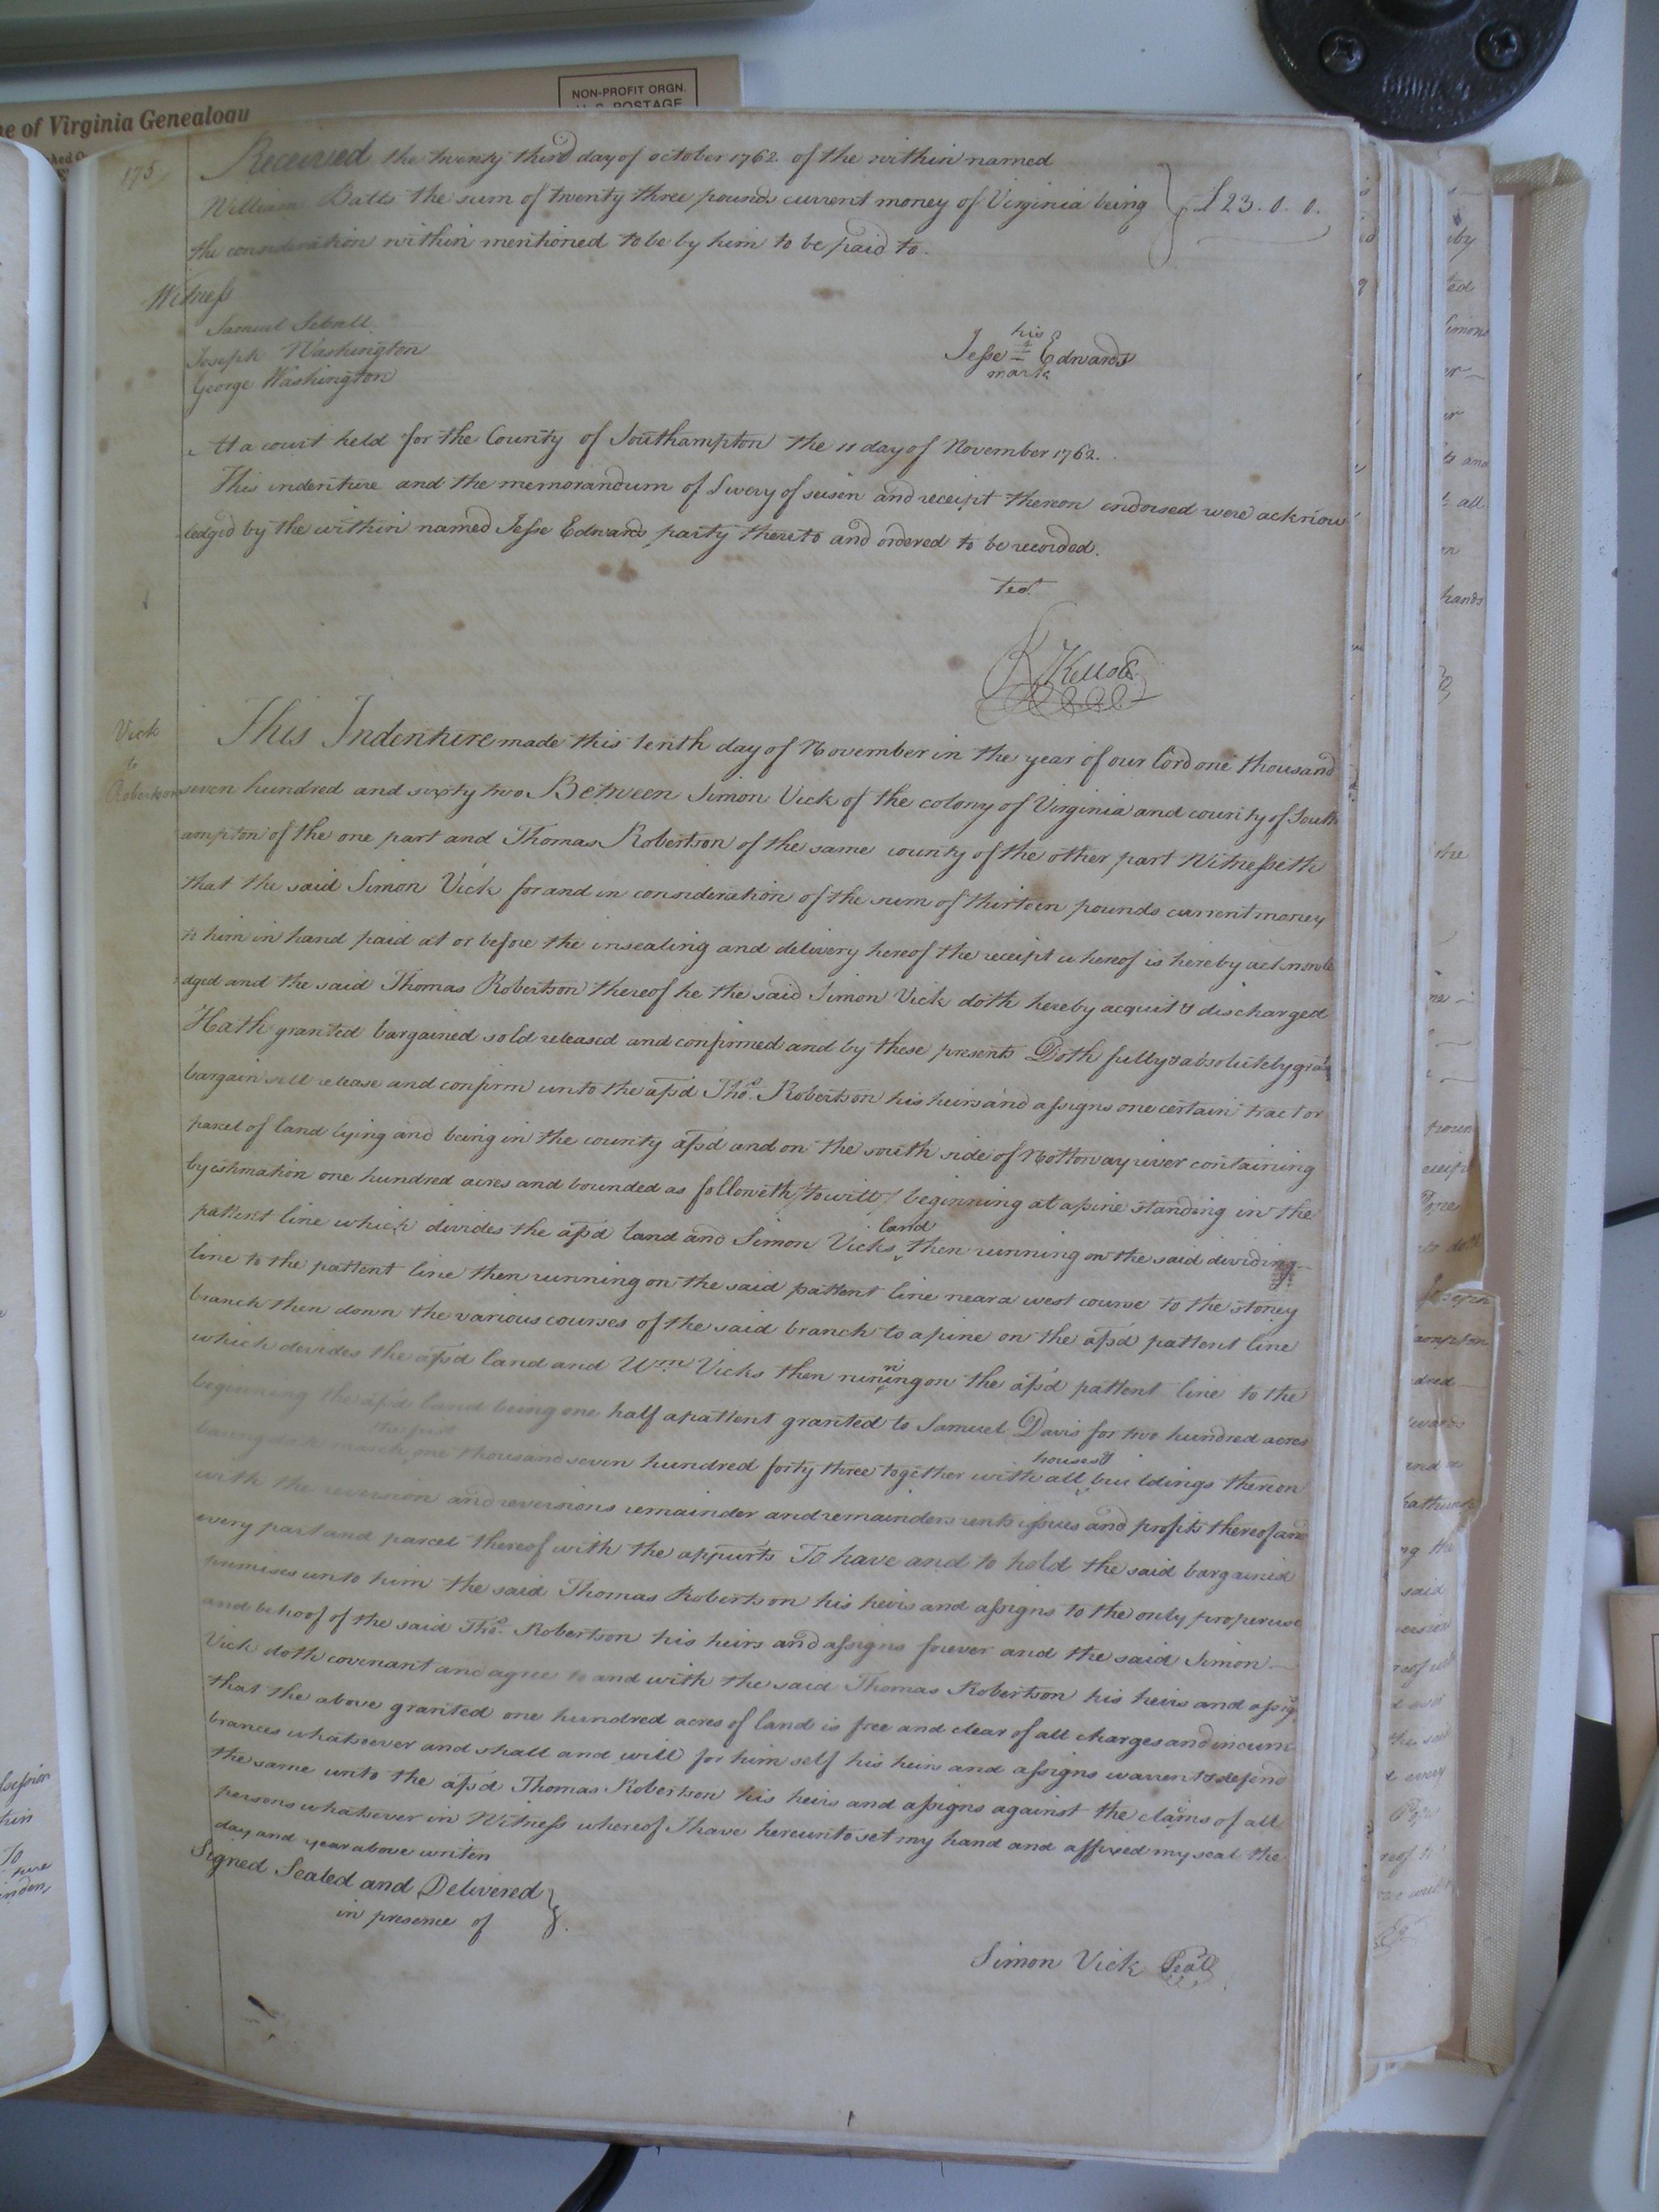 NON-PROFIT ORGN.
U.S. POSTAGE
e of Virginia Genealogy
175
Received the twenty third day of october 1762. of the within named
William Batts the sum of twenty three pounds current money of Virginia being } £23. 0. 0.
the consideration within mentioned to be by him to be paid to.
Witness
Samuel
Joseph Washington
George Washington
his
Jesse Edwards
mark
At a court held for the County of Southampton the 11 day of November 1762.
This indenture and the memorandum of Livery of seisen and receipt thereon endorsed were acknow
ledged by the within named Jesse Edwards party thereto and ordered to be recorded.
Test
R Kello
Vick
to
Robertson
This Indenture made this tenth day of November in the year of our Lord one thousand
seven hundred and sixty two Between Simon Vick of the colony of Virginia and county of South
ampton of the one part and Thomas Robertson of the same county of the other part Witnesseth
that the said Simon Vick for and in consideration of the sum of thirteen pounds current money
to him in hand paid at or before the insealing and delivery hereof the receipt whereof is hereby acknowle
dged and the said Thomas Robertson thereof he the said Simon Vick doth hereby acquit & discharged
Hath granted bargained sold released and confirmed and by these presents Doth fully & absolutely grant
bargain sell release and confirm unto the afsd Tho.s Robertson his heirs and assigns one certain tract or
parcel of land lying and being in the county afsd and on the south side of Nottoway river containing
by estimation one hundred acres and bounded as followeth /towitt/ beginning at a pine standing in the
pattent line which divides the afsd land and Simon Vicks land then running on the said dividing
line to the pattent line then running on the said pattent line near a west course to the stoney
branch then down the various courses of the said branch to a pine on the afsd pattent line
which devides the afsd land and Wm Vicks then runing on the afsd pattent line to the
beginning the afsd land being one half a pattent granted to Samuel Davis for two hundred acres
baring date march the first one thousand seven hundred forty three together with all houses & buildings thereon
with the reversion and reversions remainder and remainders rents issues and profits thereof and
every part and parcel thereof with the appurts To have and to hold the said bargained
premises unto him the said Thomas Robertson his heirs and assigns to the only proper use
and behoof of the said Tho.s Robertson his heirs and assigns forever and the said Simon
Vick doth covenant and agree to and with the said Thomas Robertson his heirs and assigs
that the above granted one hundred acres of land is free and clear of all charges and incum
brances whatsoever and shall and will for him self his heirs and assigns warrent & defend
the same unto the afsd Thomas Robertson his heirs and assigns against the claims of all
persons whatsever in Witness whereof I have hereunto set my hand and affixed my seal the
day and year above writen
Signed Sealed and Delivered }
in presence of
Simon Vick Seal